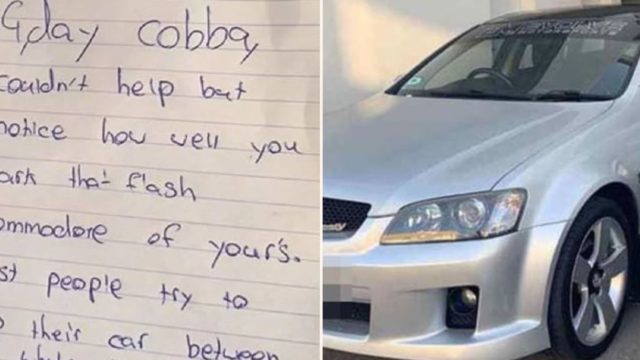 G'day cobba,
couldn't help but
notice how well you
ark that flash
ommodore of your's.
st people try to
their car between